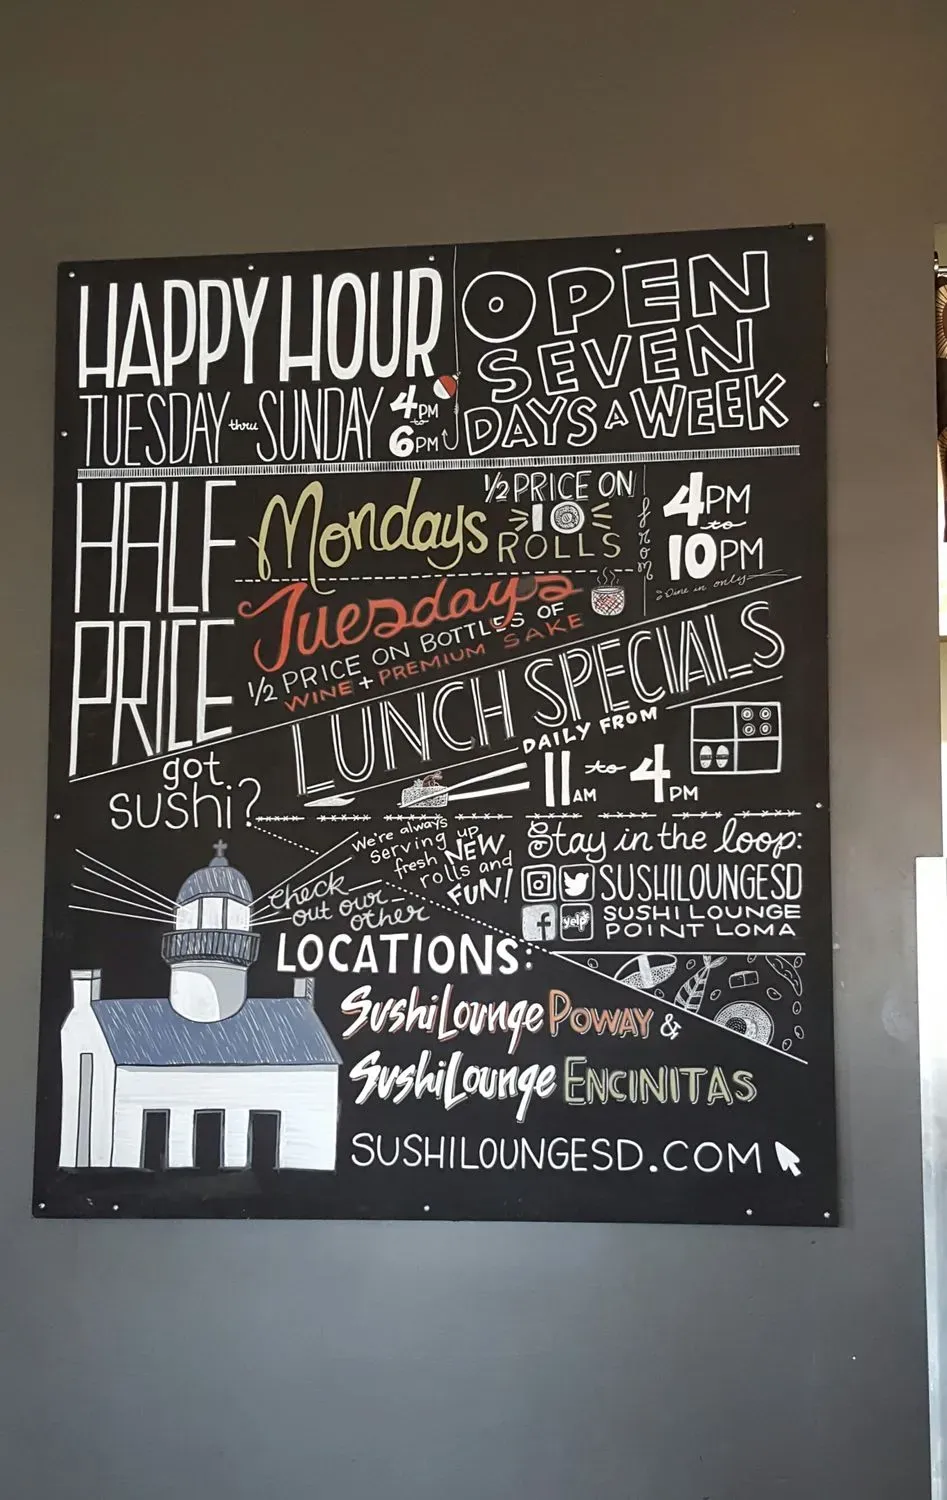 HAPPY HOUR
TUESDAY thru SUNDAY 4PM to 6PM
OPEN
SEVEN
DAYS A WEEK
HALF
PRICE
Mondays
1/2 PRICE ON
10
ROLLS
from
4PM
to
10PM
Dine in only
Tuesdays
1/2 PRICE ON BOTTLES OF
WINE + PREMIUM SAKE
LUNCH SPECIALS
DAILY FROM
11AM to 4PM
got
sushi?
We're always
serving up
fresh NEW
rolls and
FUN!
Stay in the loop:
SUSHILOUNGESD
f yelp SUSHI LOUNGE
POINT LOMA
Check
out our
other
LOCATIONS:
SushiLounge POWAY &
SushiLounge ENCINITAS
SUSHILOUNGESD.COM